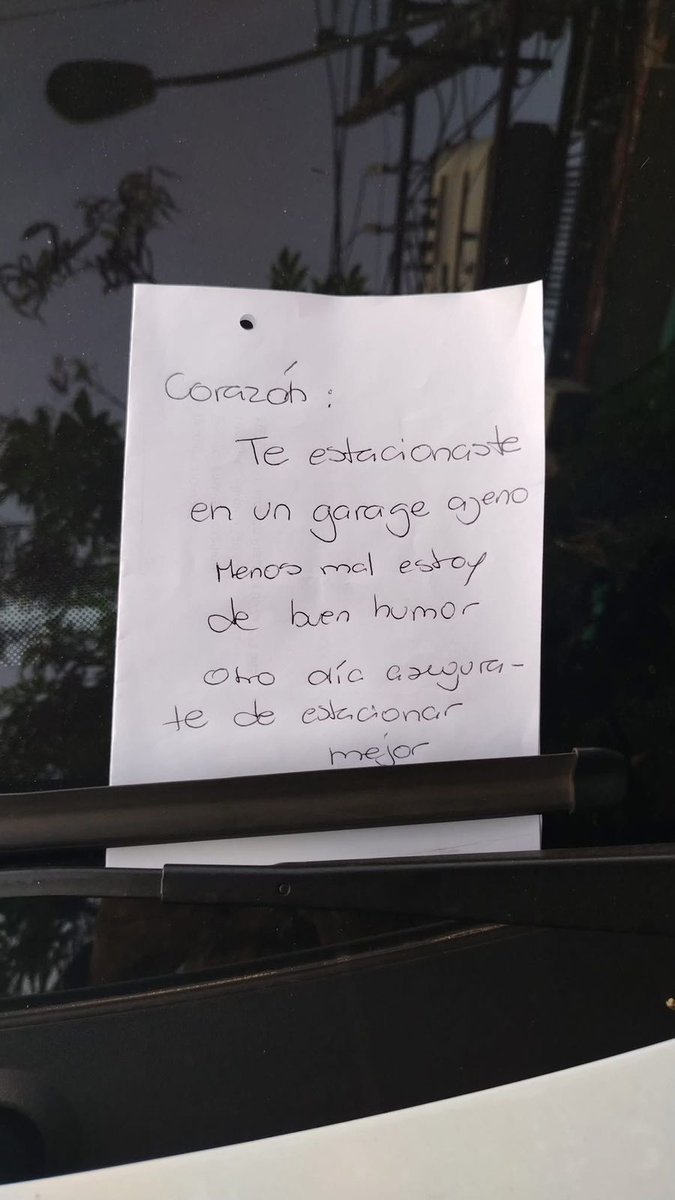 Corazón:
Te estacionaste
en un garage ajeno
Menos mal estoy
de buen humor
Otro día asegura-
te de estacionar
mejor